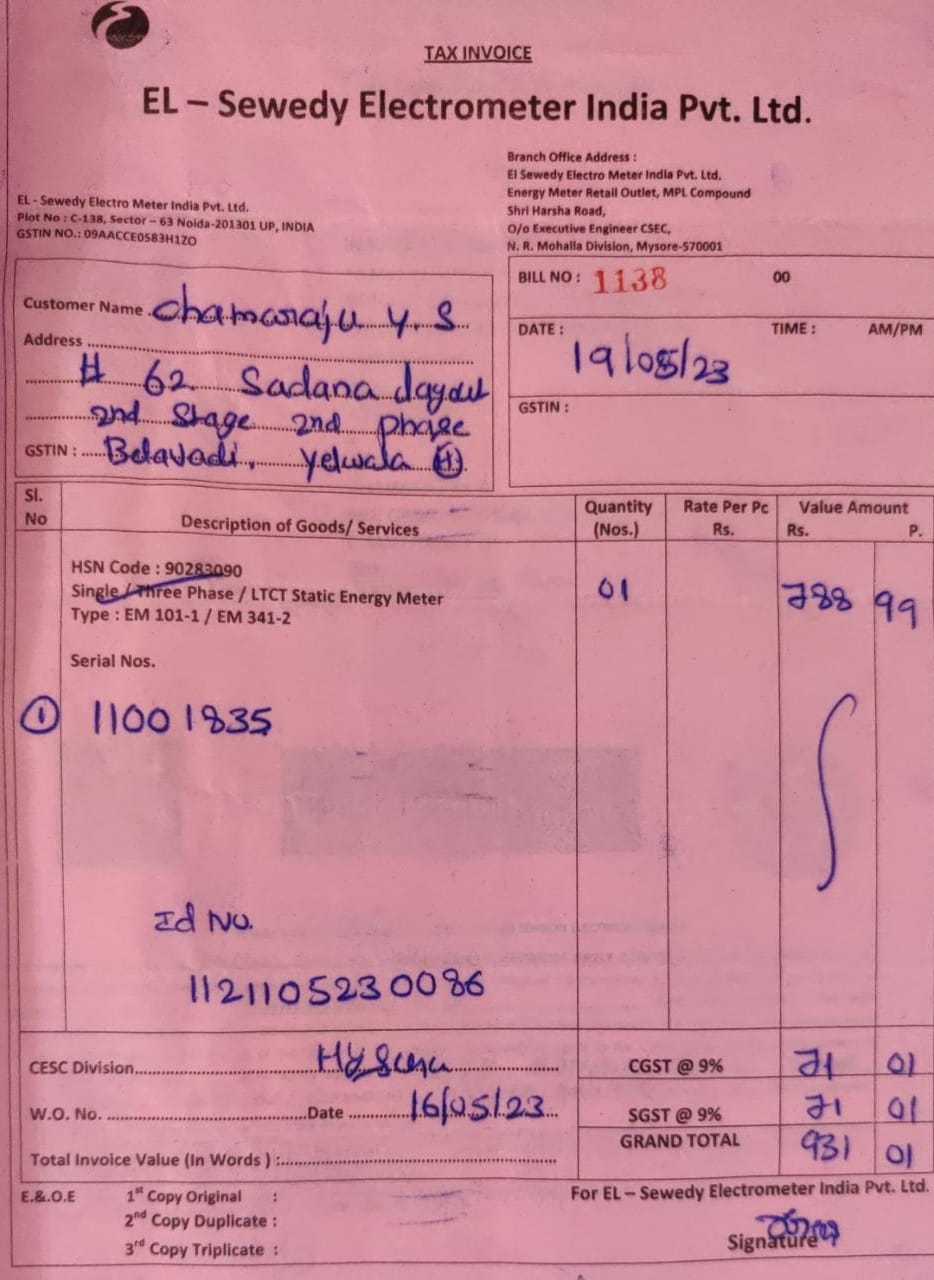 TAX INVOICE
EL – Sewedy Electrometer India Pvt. Ltd.
EL - Sewedy Electro Meter India Pvt. Ltd.
Plot No : C-138, Sector – 63 Noida-201301 UP, INDIA
GSTIN NO.: 09AACCE0583H1ZO
Branch Office Address :
El Sewedy Electro Meter India Pvt. Ltd.
Energy Meter Retail Outlet, MPL Compound
Shri Harsha Road,
O/o Executive Engineer CSEC,
N. R. Mohalla Division, Mysore-570001
Customer Name Chamaraju Y. S
Address
# 62 Sadana Layout
2nd Stage 2nd phase
GSTIN : Belavadi, Yelwala (H)
BILL NO : 1138 00
DATE : TIME : AM/PM
19/05/23
GSTIN :
Sl. No Description of Goods/ Services Quantity (Nos.) Rate Per Pc Rs. Value Amount Rs. P.
HSN Code : 90283090
Single / Three Phase / LTCT Static Energy Meter 01 788 99
Type : EM 101-1 / EM 341-2
Serial Nos.
① 11001835
Id No.
1121105230086
CESC Division CGST @ 9% 71 01
W.O. No. Date 16/05/23 SGST @ 9% 71 01
GRAND TOTAL 931 01
Total Invoice Value (In Words ) :
E.&.O.E 1st Copy Original :
2nd Copy Duplicate :
3rd Copy Triplicate :
For EL – Sewedy Electrometer India Pvt. Ltd.
Signature